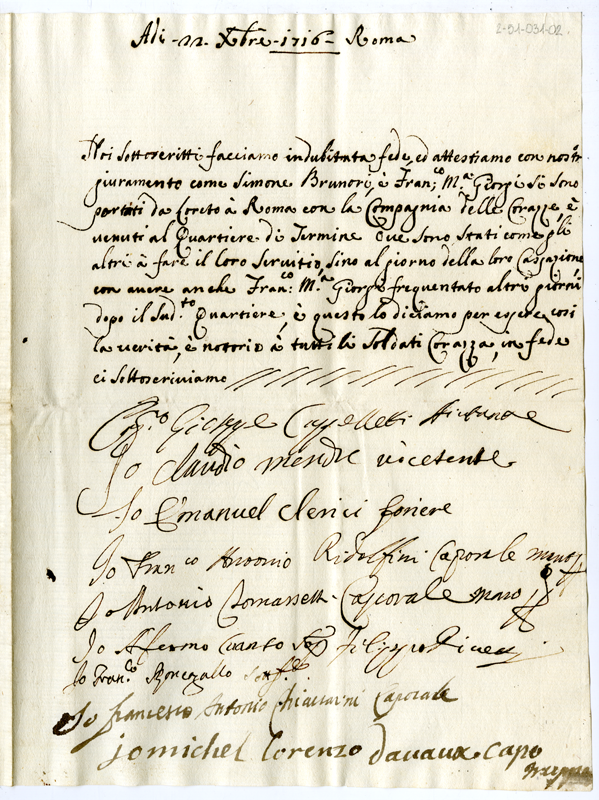 2-91-031-02.
Adi - 22 - Xbre - 1716 - Roma
Noi sottoscritti facciamo indubitata fede, ed attestiamo con nostr
giuramento come Simone Brunori, è Fran:co M.a Giorgi si sono
portati da Loreto à Roma con la Compagnia delle Corazze, è
venuti al Quartiere di Termine Ove sono stati come gl'
altri à fare il loro Servitio, sino al giorno della loro Cassazione
con avere anche Fran:co M.a Giorgi frequentato altri giorni
dopo il Sud.to Quartiere, è questo lo diciamo per essere così
la verità, è notorio à tutti li Soldati Corazza, in fede
ci sottoscriviamo
Giuseppe Cappelletti
Io Claudio vicetente
Io Emanuel Clerici foriere
Io Franco Antonio Ridolfini Caporale
Io Antonio Tomassetti Caporale
Io Afermo quanto Sop Filippo
Io Fran.co
Io Francesco Antonio Chiavarini Caporale
io michel lorenzo davaux. Capo